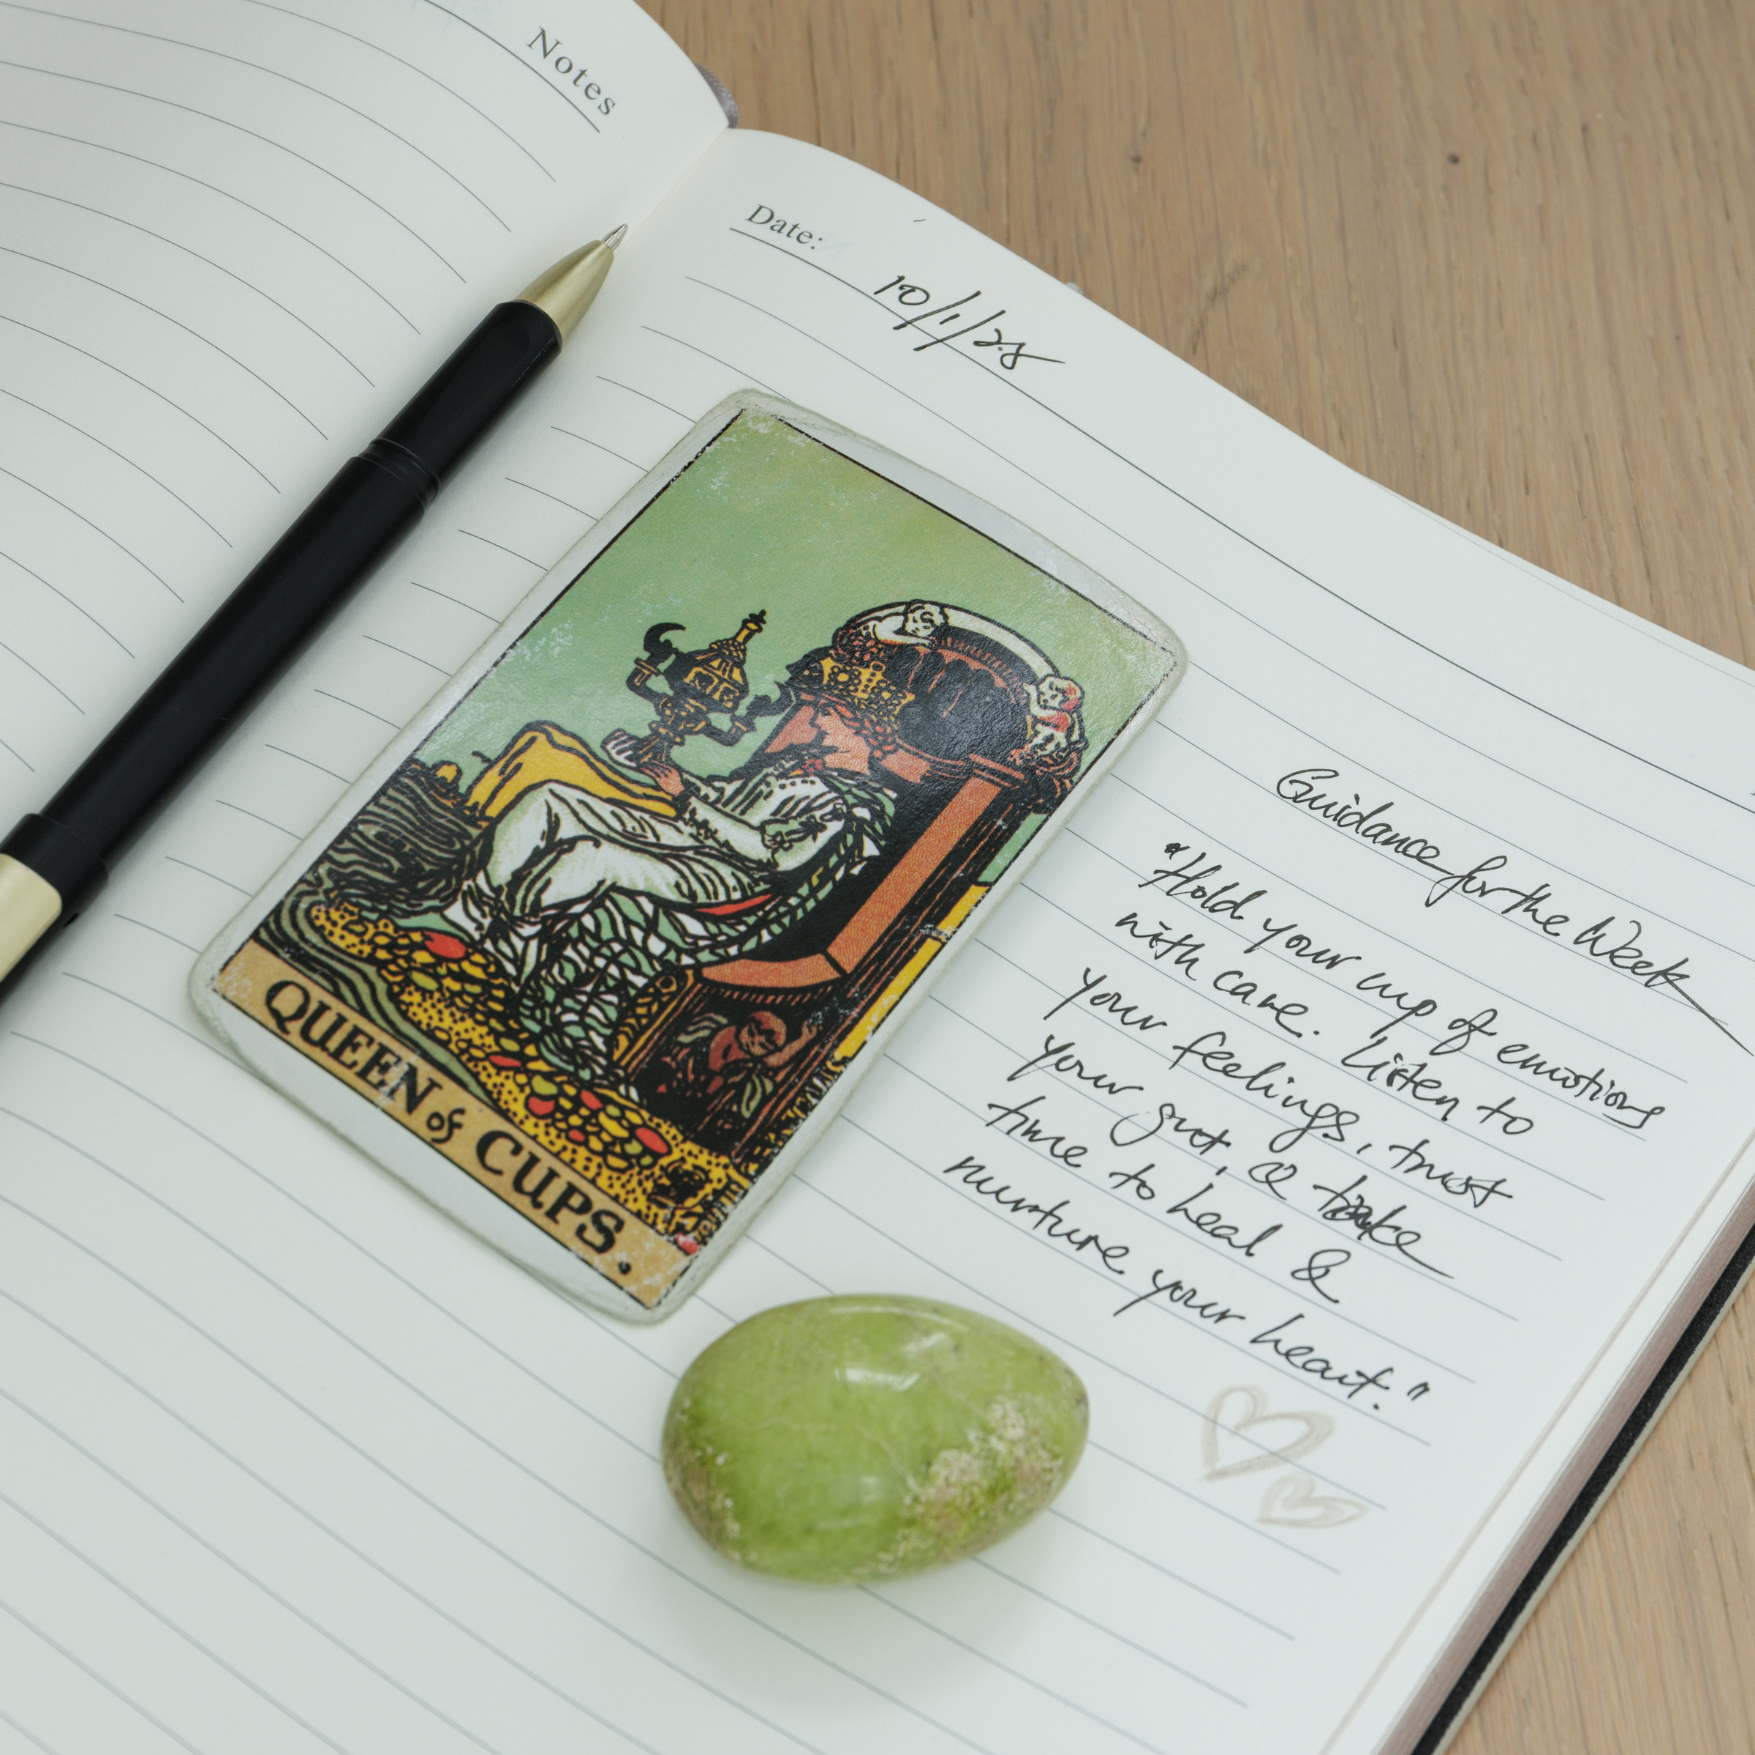 Notes
Date:
10/1/28
QUEEN of CUPS.
Guidance for the Week
"Hold your cup of emotions
with care. Listen to
your feelings, trust
your gut, & take
time to heal &
nurture your heart."